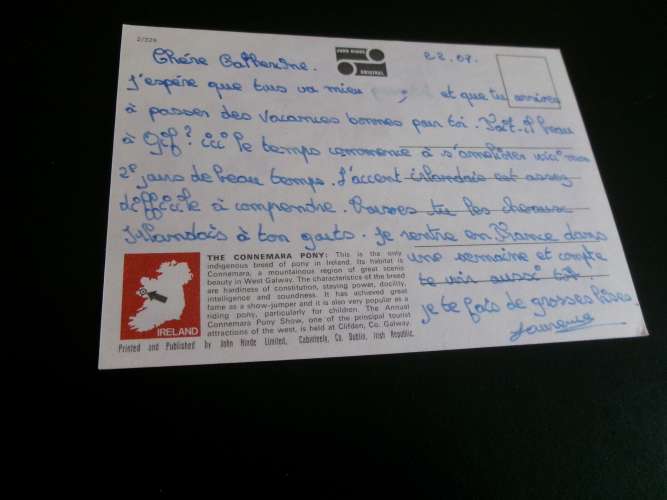 2/324
JOHN HINDE
ORIGINAL
22.07.
Chère Catherine.
J'espère que tu va mieu et que tu arrives
à passer des vacances bonnes pour toi. Fait-il beau
à Gif? ici le temps commence à s'améliorer voici mon
2e jours de beau temps. L'accent irlandais est assez
difficile à comprendre. Trouves tu les chevaux
Irlandais à ton goûts. Je rentre en France dans
une semaine et compte
te voir aussi tôt
je te fais de grosses bises.
Laurence
THE CONNEMARA PONY: This is the only
indigenous breed of pony in Ireland. Its habitat is
Connemara, a mountainous region of great scenic
beauty in West Galway. The characteristics of the breed
are hardiness of constitution, staying power, docility,
intelligence and soundness. It has achieved great
fame as a show-jumper and it is also very popular as a
riding pony, particularly for children. The Annual
Connemara Pony Show, one of the principal tourist
attractions of the west, is held at Clifden, Co. Galway.
IRELAND
Printed and Published by John Hinde Limited, Cabinteely, Co. Dublin, Irish Republic.